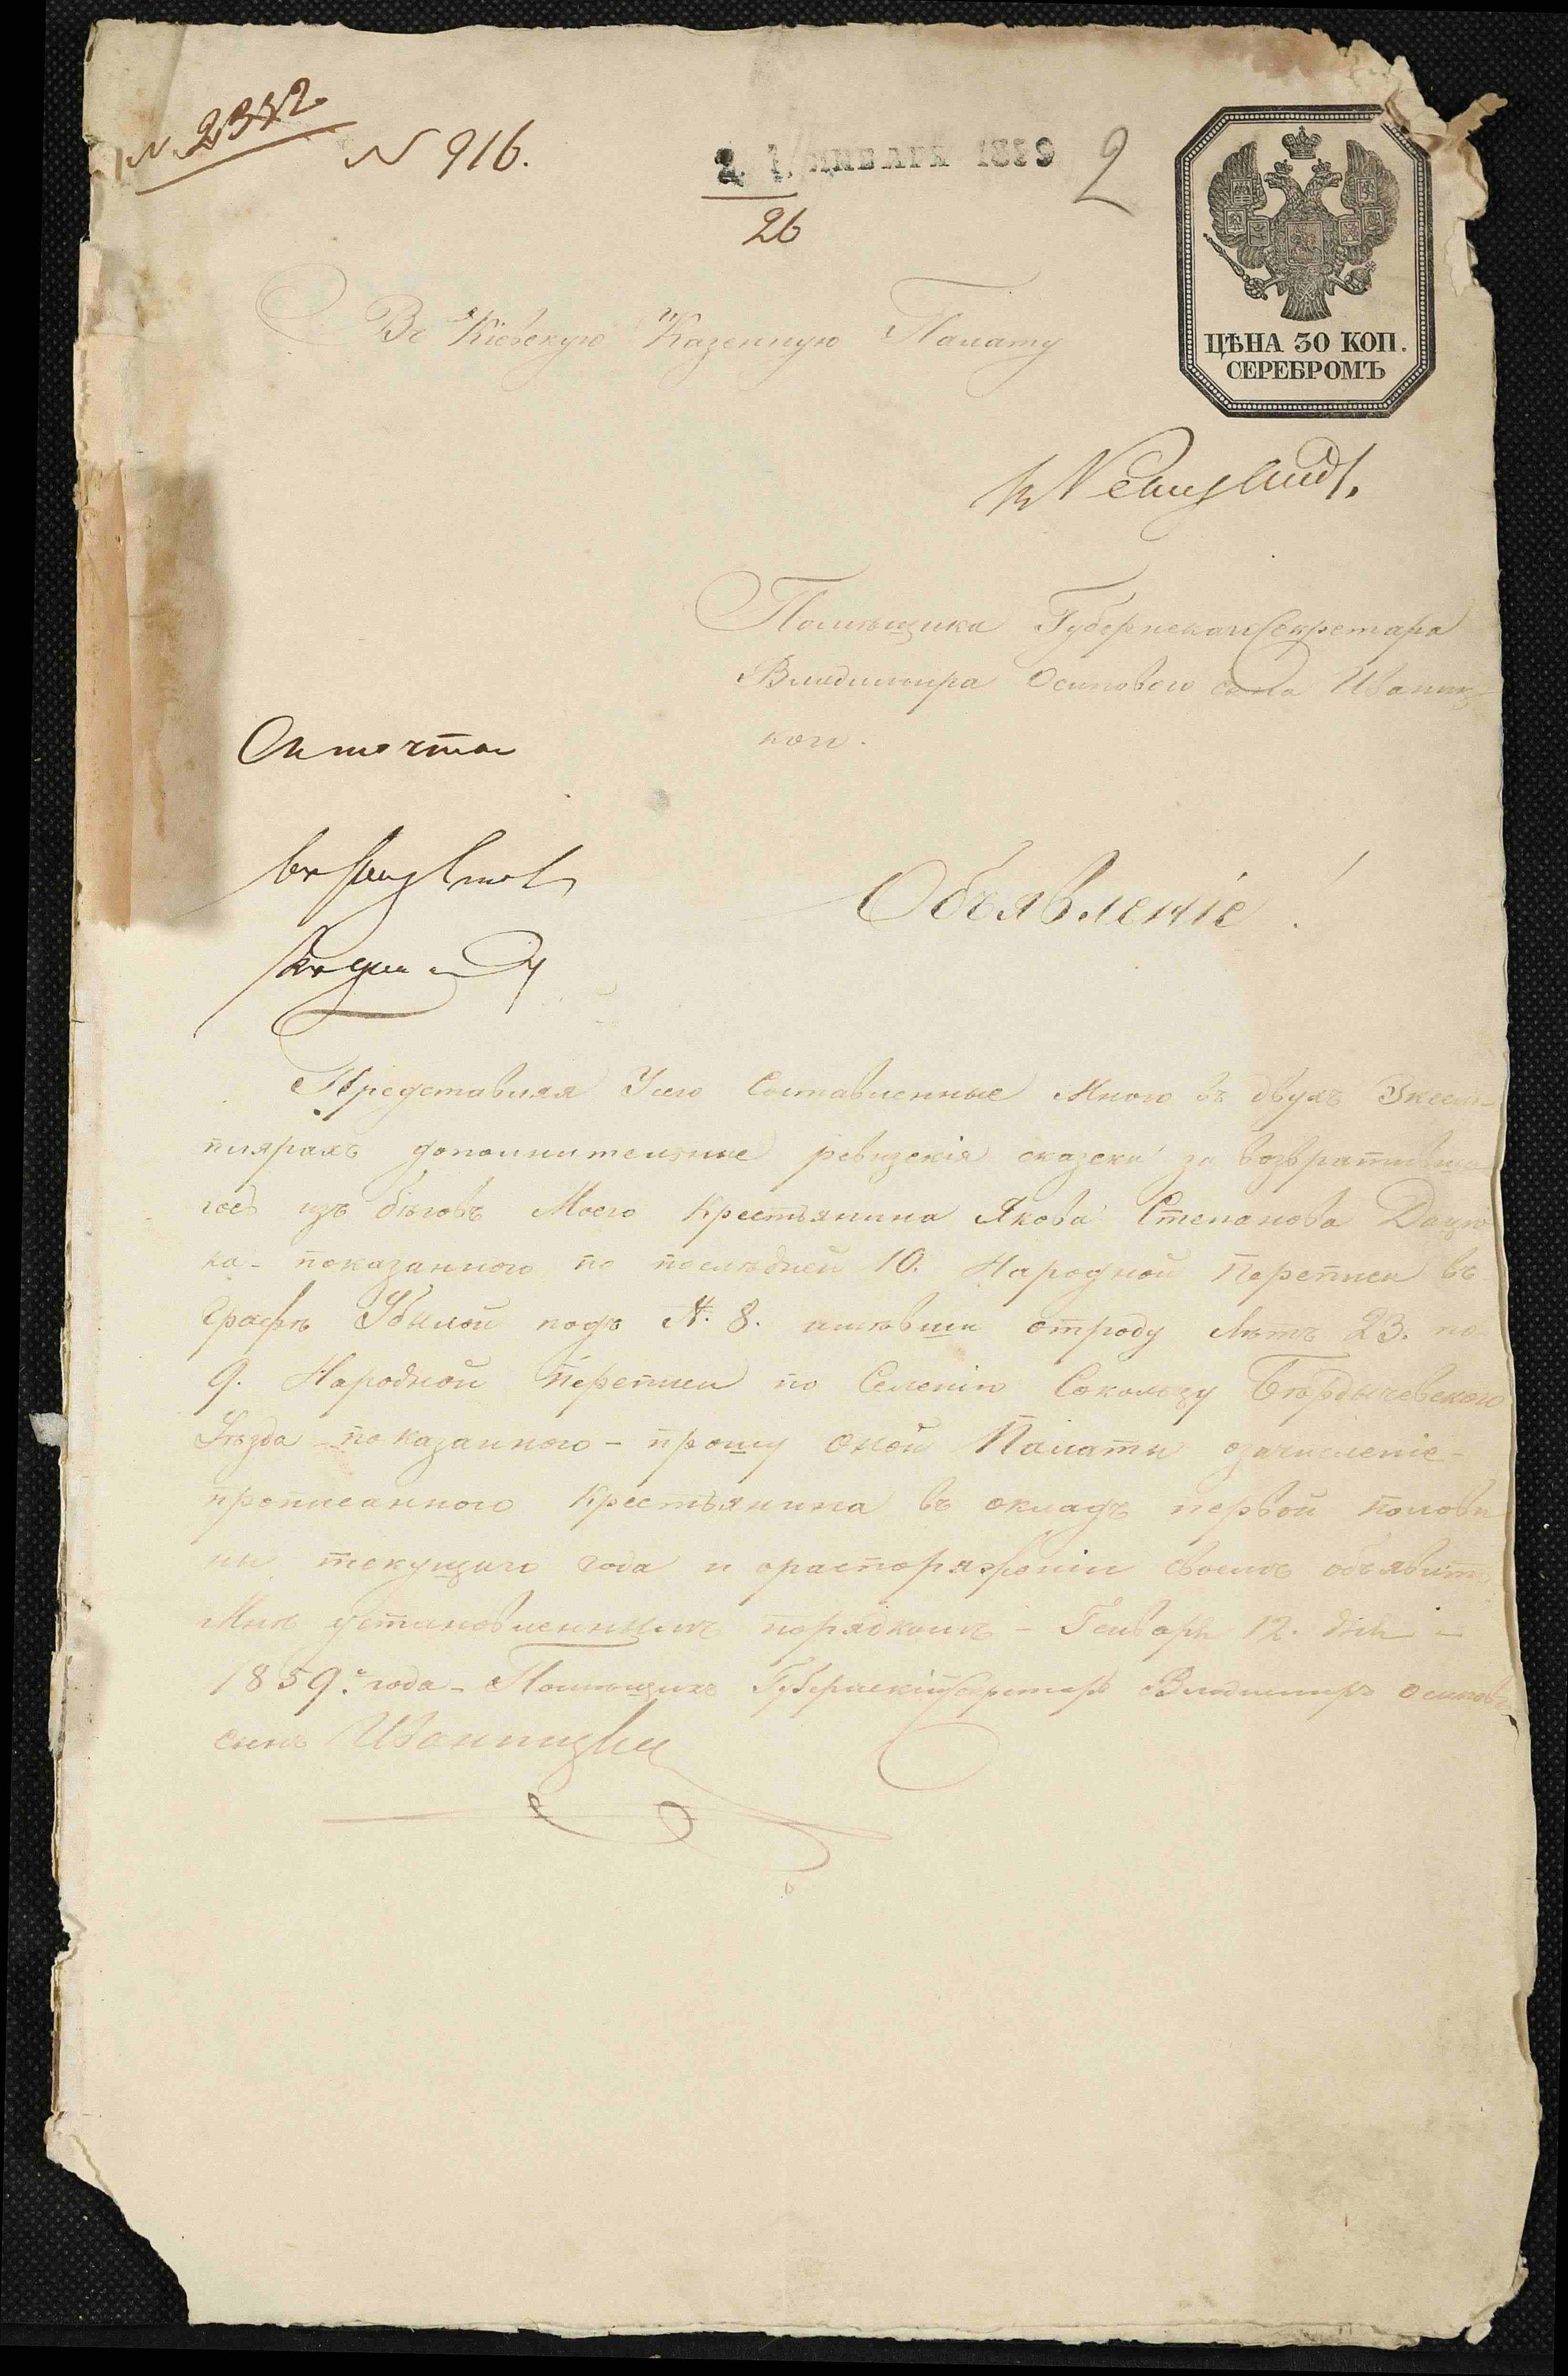 N. 2372
N 916.
ЯНВАРЯ 1859
2
26
ЦѢНА 30 КОП.
СЕРЕБРОМЪ
Въ Кіевскую Казенную Палату
Помѣщика Губернскаго Секретара
Владимира Осиповаго сына Иваниц
кого.
Объявленіе!
Представляя Усего Составленные Мною въ двухъ Экзем-
плярахъ дополнительные ревизскія сказски за возвратившa
гось изъ бѣговъ Моего Крестьянина Якова Степанова Дацю
ка - показанного по послѣдней 10. Народной Переписи въ
Графѣ Убылой подъ №. 8. имѣвши отроду Лѣтъ 23. по-
9. Народной Переписи по Селенію Соколцу Бѣрдычевского
Уѣзда - показанного - прошу оной Палаты озачисленіе-
прописанного Крестьянина въ окладъ первой полови
ны текущаго года и ораспоряженіи своемъ объявить
Мнѣ установленнымъ порядкомъ - Генваря 12. дня -
1859.го года - Помѣщикъ Губернскій Секретаръ Владимиръ Осиповъ
сынъ Иваницкій